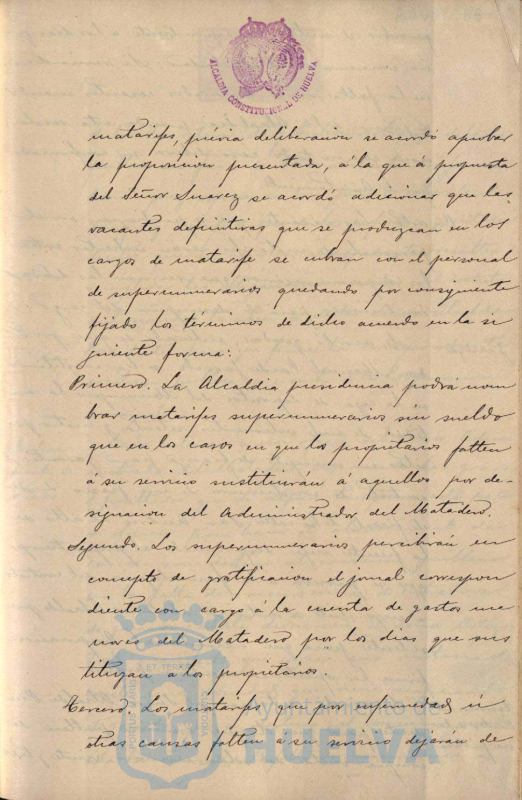 ALCALDIA CONSTITUCIONAL DE HUELVA
matarifes, prévia deliberacion se acordó aprobar
la proposicion presentada, á la que á propuesta
del Señor Suarez se acordó adicionar que las
vacantes definitivas que se produzcan en los
cargos de matarife se cubran con el personal
de supernumerarios quedando por consiguiente
fijado los términos de dicho acuerdo en la si
guiente forma:
Primero. La Alcaldia presidencia podrá nom
brar matarifes supernumerarios sin sueldo
que en los casos en que los propietarios falten
á su servicio sustituirán á aquellos por de-
signacion del Administrador del Matadero.
Segundo. Los supernumerarios percibirán en
concepto de gratificacion el jornal correspon
diente con cargo á la cuenta de gastos me
nores del Matadero por los dias que sus
tituyan a los propietarios.
Tercero. Los matarifes que por enfermedad, ú
otras causas falten a su servicio dejarán de
PORTUS MARIS ET TERRAE CUSTODIA
Ayuntamiento de
HUELVA